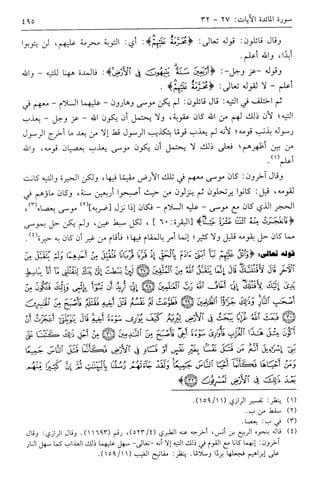 سورة المائدة الآيات: ٢٧ - ٣٢ ٤٩٥
وقال قائلون: قوله تعالى: ﴿مُحَرَّمَةٌ عَلَيْهِمْ﴾: أي: التوبة محرمة عليهم، لن يتوبوا
أبدًا، والله أعلم.
وقوله -عز وجل-: ﴿أَرْبَعِينَ سَنَةً يَتِيهُونَ فِي الْأَرْضِ﴾: فالمدة ههنا للتيه - والله
أعلم - لا لقوله تعالى: ﴿مُحَرَّمَةٌ عَلَيْهِمْ﴾.
ثم اختلف في التيه: قال قائلون: لم يكن موسى وهارون - عليهما السلام - معهم في
التيه؛ لأن ذلك لهم من الله كان عقوبة، ولا يحتمل أن يكون الله - عز وجل - يعذب
رسوله بذنب قومه؛ لأنه لم يعذب قومًا بتكذيب الرسول قط إلا من بعد ما أخرج الرسول
من بين أظهرهم؛ فعلى ذلك لا يحتمل أن يكون موسى يعذب بعصيان قومه، والله
أعلم(١).
وقال آخرون: كان موسى معهم في تلك الأرض مقيمًا فيها، ولكن الحيرة والتيه كانت
لقومه، قيل: كانوا يرتحلون ثم ينزلون من حيث أصبحوا أربعين سنة، وكان ماؤهم في
الحجر الذي كان مع موسى - عليه السلام - فكان إذا نزل [ضربه](٢) موسى بعصاه(٣)،
﴿فَانْفَجَرَتْ مِنْهُ اثْنَتَا عَشْرَةَ عَيْنًا﴾ [البقرة: ٦٠]، لكل سبط عين، ولم يكن حل بموسى
مما كان حل بقومه قليل ولا كثير؛ إنما أمر بالمقام فيها؛ فأقام من غير أن كان به حيرة(٤).
قوله تعالى: ﴿وَاتْلُ عَلَيْهِمْ نَبَأَ ابْنَيْ آدَمَ بِالْحَقِّ إِذْ قَرَّبَا قُرْبَانًا فَتُقُبِّلَ مِنْ أَحَدِهِمَا وَلَمْ يُتَقَبَّلْ مِنَ
الْآخَرِ قَالَ لَأَقْتُلَنَّكَ قَالَ إِنَّمَا يَتَقَبَّلُ اللَّهُ مِنَ الْمُتَّقِينَ ﴿٢٧﴾ لَئِنْ بَسَطْتَ إِلَيَّ يَدَكَ لِتَقْتُلَنِي مَا أَنَا بِبَاسِطٍ
يَدِيَ إِلَيْكَ لِأَقْتُلَكَ إِنِّي أَخَافُ اللَّهَ رَبَّ الْعَالَمِينَ ﴿٢٨﴾ إِنِّي أُرِيدُ أَنْ تَبُوءَ بِإِثْمِي وَإِثْمِكَ فَتَكُونَ مِنْ
أَصْحَابِ النَّارِ وَذَلِكَ جَزَاءُ الظَّالِمِينَ ﴿٢٩﴾ فَطَوَّعَتْ لَهُ نَفْسُهُ قَتْلَ أَخِيهِ فَقَتَلَهُ فَأَصْبَحَ مِنَ الْخَاسِرِينَ
﴿٣٠﴾ فَبَعَثَ اللَّهُ غُرَابًا يَبْحَثُ فِي الْأَرْضِ لِيُرِيَهُ كَيْفَ يُوَارِي سَوْءَةَ أَخِيهِ قَالَ يَا وَيْلَتَا أَعَجَزْتُ أَنْ
أَكُونَ مِثْلَ هَذَا الْغُرَابِ فَأُوَارِيَ سَوْءَةَ أَخِي فَأَصْبَحَ مِنَ النَّادِمِينَ ﴿٣١﴾ مِنْ أَجْلِ ذَلِكَ كَتَبْنَا عَلَى
بَنِي إِسْرَائِيلَ أَنَّهُ مَنْ قَتَلَ نَفْسًا بِغَيْرِ نَفْسٍ أَوْ فَسَادٍ فِي الْأَرْضِ فَكَأَنَّمَا قَتَلَ النَّاسَ جَمِيعًا
وَمَنْ أَحْيَاهَا فَكَأَنَّمَا أَحْيَا النَّاسَ جَمِيعًا وَلَقَدْ جَاءَتْهُمْ رُسُلُنَا بِالْبَيِّنَاتِ ثُمَّ إِنَّ كَثِيرًا مِنْهُمْ
بَعْدَ ذَلِكَ فِي الْأَرْضِ لَمُسْرِفُونَ ﴿٣٢﴾﴾
(١) ينظر: تفسير الرازي (١١/١٥٩).
(٢) سقط من ب.
(٣) في ب: بعصا.
(٤) قاله بنحوه الربيع بن أنس، أخرجه عنه الطبري (٤/٥٢٣)، رقم (١١٦٩٣). وقال الرازي: وقال
آخرون: إنهما كانا مع القوم في ذلك التيه إلا أنه -تعالى- سهل عليهما ذلك العذاب كما سهل النار
على إبراهيم فجعلها بردًا وسلامًا. ينظر: مفاتيح الغيب (١١/١٥٩).